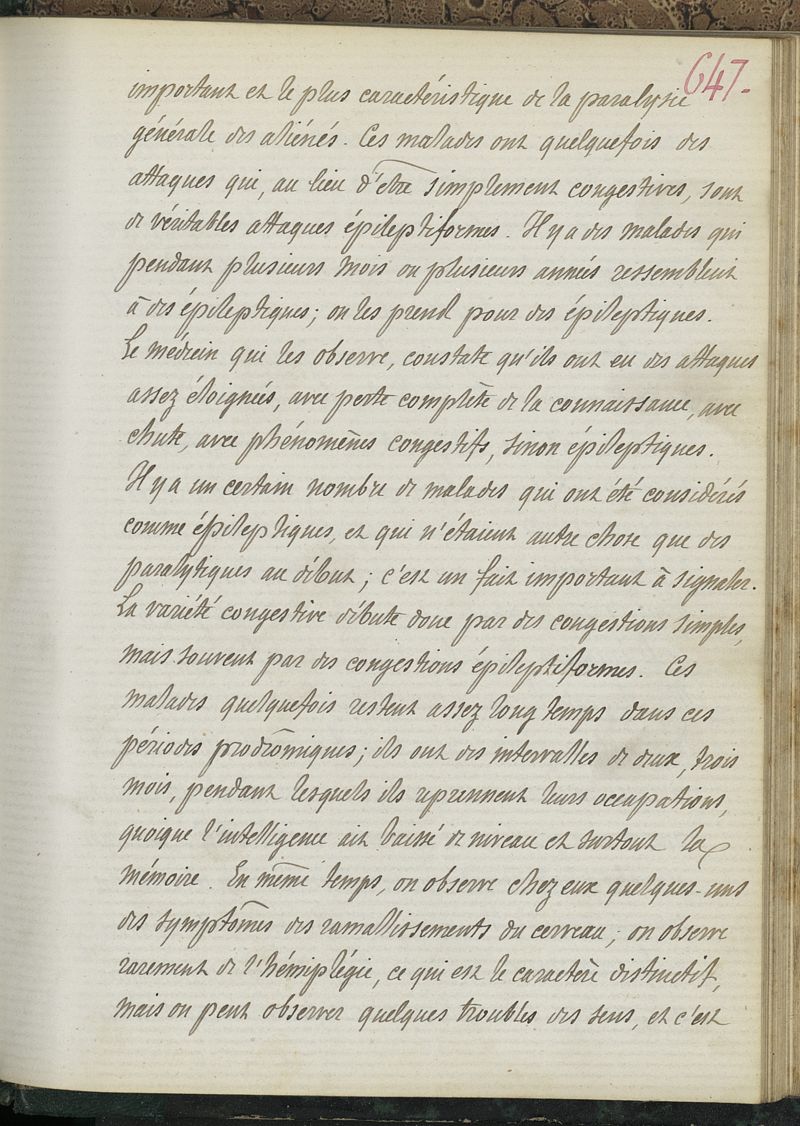 647.
important et le plus caractéristique de la paralysie
générale des aliénés. Ces malades ont quelquefois des
attaques qui, au lieu d'être simplement congestives, sont
de véritables attaques épileptiformes. Il y a des malades qui
pendant plusieurs mois ou plusieurs années ressemblent
à des épileptiques; on les prend pour des épileptiques.
Le médecin qui les observe, constate qu'ils ont eu des attaques
assez éloignées, avec perte complète de la connaissance, avec
chute, avec phénomènes congestifs, sinon épileptiques.
Il y a un certain nombre de malades qui ont été considérés
comme épileptiques, et qui n'étaient autre chose que des
paralytiques au début; c'est un fait important à signaler.
La variété congestive débute donc par des congestions simples,
mais souvent par des congestions épileptiformes. Ces
malades quelquefois restent assez long temps dans ces
périodes prodrômiques; ils ont des intervalles de deux, trois
mois, pendant lesquels ils reprennent leurs occupations,
quoique l'intelligence ait baissé de niveau et surtout la
mémoire. En même temps, on observe chez eux quelques-uns
des symptômes des ramollissements du cerveau; on observe
rarement de l'hémiplégie, ce qui est le caractère distinctif,
mais on peut observer quelques troubles des sens, et c'est